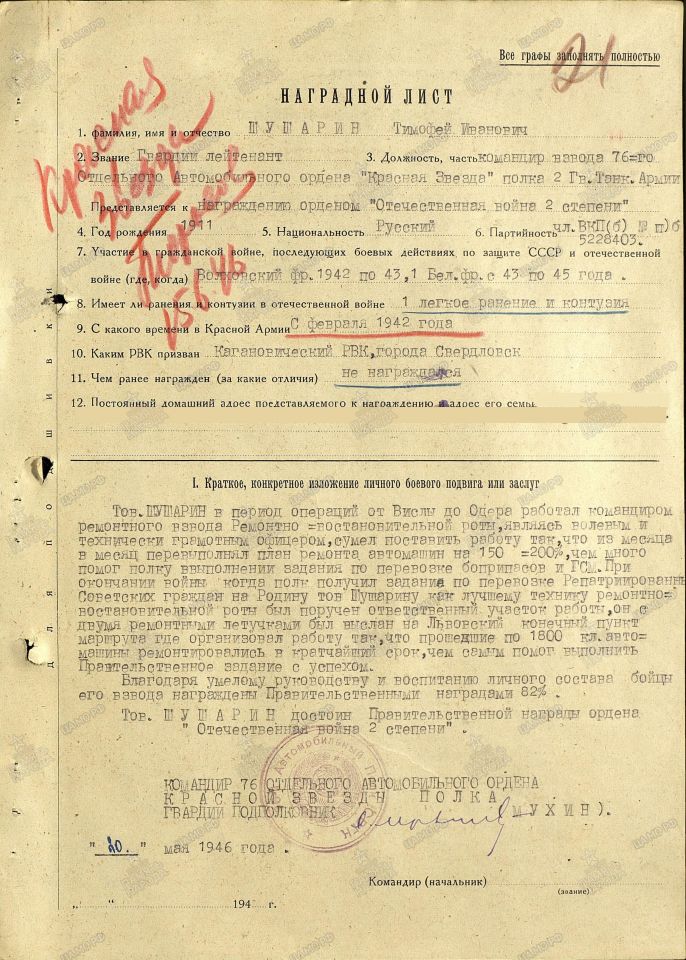 Все графы заполнять полностью
21
НАГРАДНОЙ ЛИСТ
Красная
Звезда
15.6.46
1. фамилия, имя и отчество ШУШАРИН Тимофей Иванович
2. Звание Гвардии лейтенант 3. Должность, часть командир взвода 76=го
Отдельного Автомобильного ордена "Красная Звезда" полка 2 Гв.Танк.Армии
Представляется к награждению орденом "Отечественная война 2 степени"
4. Год рождения 1911 5. Национальность Русский 6. Партийность чл.ВКП(б) № п)б
5228403.
7. Участие в гражданской войне, последующих боевых действиях по защите СССР и отечественной
войне (где, когда) Волховский фр.1942 по 43,1 Бел.фр.с 43 по 45 года.
8. Имеет ли ранения и контузии в отечественной войне 1 легкое ранение и контузия
9. С какого времени в Красной Армии С февраля 1942 года
10. Каким РВК призван Кагановический РВК,города Свердловск
11. Чем ранее награжден (за какие отличия) не награждался
12. Постоянный домашний адрес представляемого к награждению и адрес его семьи
I. Краткое, конкретное изложение личного боевого подвига или заслуг
Тов.ШУШАРИН в период операций от Вислы до Одера работал командиром
ремонтного взвода Ремонтно =востановительной роты,являясь волевым и
технически грамотным офицером,сумел поставить работу так,что из месяца
в месяц перевыполнял план ремонта автомашин на 150 =200%,чем много
помог полку ввыполнении задания по перевозке боприпасов и ГСМ.При
окончании войны когда полк получил задание по перевозке Репатриированны
Советских граждан на Родину тов Шушарину как лучшему технику ремонтно=
востановительной роты был поручен ответственный участок работы,он с
двумя ремонтными летучками был выслан на Львовский конечный пункт
маршрута где организовал работу так,что прошедшие по 1800 кл.авто=
машины ремонтировались в кратчайший срок,чем самым помог выполнить
Правительственное задание с успехом.
Благодаря умелому руководству и воспитанию личного состава бойцы
его взвода награждены Правительственными наградами 82%.
Тов. ШУШАРИН достоин Правительственной награды ордена
" Отечественная война 2 степени".
КОМАНДИР 76 ОТДЕЛЬНОГО АВТОМОБИЛЬНОГО ОРДЕНА
КРАСНОЙ ЗВЕЗДЫ ПОЛКА
ГВАРДИИ ПОДПОЛКОВНИК МУХИН).
"20." мая 1946 года.
Командир (начальник)
(звание)
" " 194 г.
для подшивки